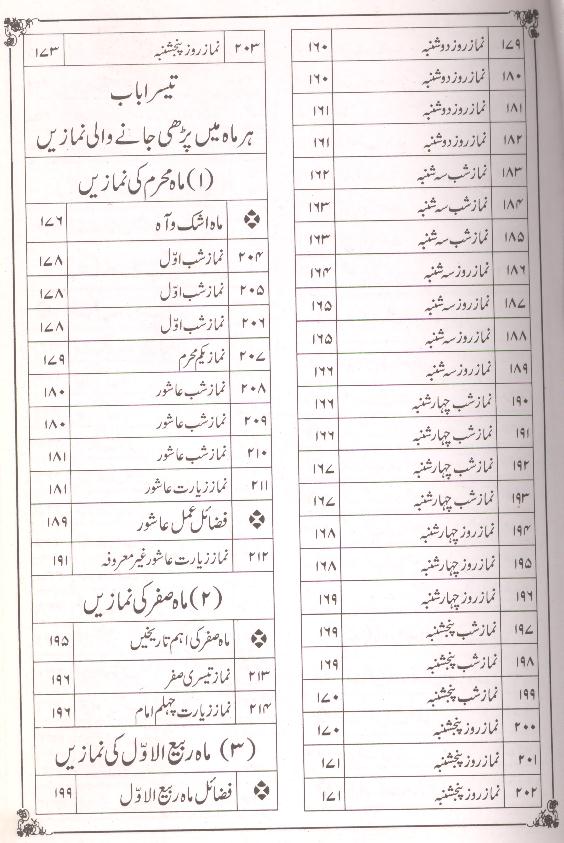 ۱۷۹ نماز روز دوشنبہ ۱۶۰
۱۸۰ نماز روز دوشنبہ ۱۶۰
۱۸۱ نماز روز دوشنبہ ۱۶۱
۱۸۲ نماز روز دوشنبہ ۱۶۱
۱۸۳ نماز شب سہ شنبہ ۱۶۲
۱۸۴ نماز شب سہ شنبہ ۱۶۳
۱۸۵ نماز شب سہ شنبہ ۱۶۳
۱۸۶ نماز روز سہ شنبہ ۱۶۴
۱۸۷ نماز روز سہ شنبہ ۱۶۵
۱۸۸ نماز روز سہ شنبہ ۱۶۵
۱۸۹ نماز روز سہ شنبہ ۱۶۶
۱۹۰ نماز شب چہار شنبہ ۱۶۶
۱۹۱ نماز شب چہار شنبہ ۱۶۶
۱۹۲ نماز شب چہار شنبہ ۱۶۷
۱۹۳ نماز شب چہار شنبہ ۱۶۷
۱۹۴ نماز روز چہار شنبہ ۱۶۸
۱۹۵ نماز روز چہار شنبہ ۱۶۸
۱۹۶ نماز روز چہار شنبہ ۱۶۹
۱۹۷ نماز شب پنجشنبہ ۱۶۹
۱۹۸ نماز شب پنجشنبہ ۱۶۹
۱۹۹ نماز شب پنجشنبہ ۱۷۰
۲۰۰ نماز روز پنجشنبہ ۱۷۰
۲۰۱ نماز روز پنجشنبہ ۱۷۱
۲۰۲ نماز روز پنجشنبہ ۱۷۱
۲۰۳ نماز روز پنجشنبہ ۱۷۳
تیسرا باب
ہر ماہ میں پڑھی جانے والی نمازیں
(۱) ماہ محرم کی نمازیں
ماہ اشک و آہ ۱۷۶
۲۰۴ نماز شب اوّل ۱۷۸
۲۰۵ نماز شب اوّل ۱۷۸
۲۰۶ نماز شب اوّل ۱۷۸
۲۰۷ نماز یکم محرم ۱۷۹
۲۰۸ نماز شب عاشور ۱۸۰
۲۰۹ نماز شب عاشور ۱۸۰
۲۱۰ نماز شب عاشور ۱۸۱
۲۱۱ نماز زیارت عاشور ۱۸۱
فضائل عمل عاشور ۱۸۹
۲۱۲ نماز زیارت عاشور غیر معروفہ ۱۹۱
(۲) ماہ صفر کی نمازیں
ماہ صفر کی اہم تاریخیں ۱۹۵
۲۱۳ نماز تیسری صفر ۱۹۶
۲۱۴ نماز زیارت چہلم امام ۱۹۶
(۳) ماہ ربیع الاوّل کی نمازیں
فضائل ماہ ربیع الاوّل ۱۹۹